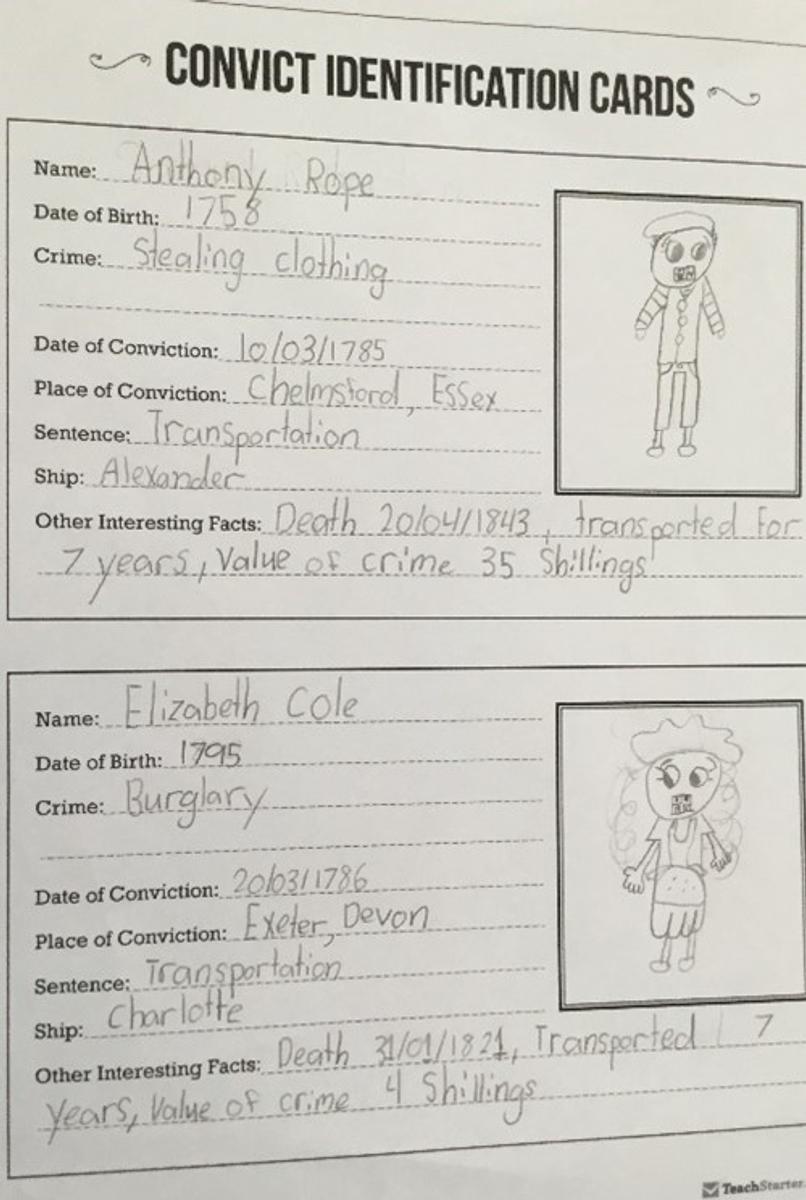 CONVICT IDENTIFICATION CARDS
Name: Anthony Rope
Date of Birth: 1758
Crime: Stealing clothing
Date of Conviction: 10/03/1785
Place of Conviction: Chelmsford, Essex
Sentence: Transportation
Ship: Alexander
Other Interesting Facts: Death 20/04/1843, transported for
7 years, Value of crime 35 Shillings
Name: Elizabeth Cole
Date of Birth: 1795
Crime: Burglary
Date of Conviction: 20/03/1786
Place of Conviction: Exeter, Devon
Sentence: Transportation
Ship: Charlotte
Other Interesting Facts: Death 31/01/1821, Transported 7
years, Value of crime 4 Shillings
TeachStarter